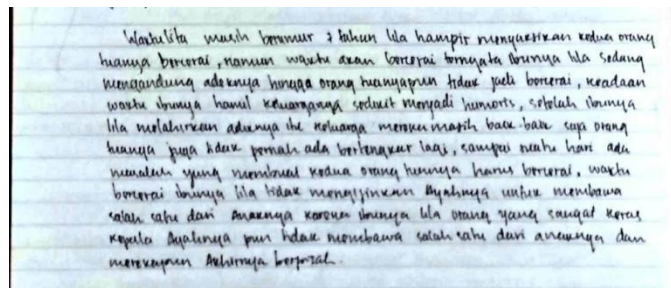 Waktu lila masih berumur 7 tahun lila hampir menyaksikan kedua orang
tuanya bercerai, namun waktu akan bercerai ternyata ibunya lila sedang
mengandung adeknya hingga orang tuanyapun tidak jadi bercerai, keadaan
waktu ibunya hamil keluarganya sedikit menjadi humoris, setelah ibunya
lila melahirkan adiknya itu keluarga mereka masih baik-baik saja orang
tuanya juga tidak pernah ada bertengkar lagi, sampai suatu hari ada
masalah yang membuat kedua orang tuanya harus bercerai, waktu
bercerai ibunya lila tidak mengijinkan Ayahnya untuk membawa
salah satu dari Anaknya karena ibunya lila orang yang sangat keras
kepala Ayahnya pun tidak membawa salah satu dari anaknya dan
merekapun Akhirnya berpisah.